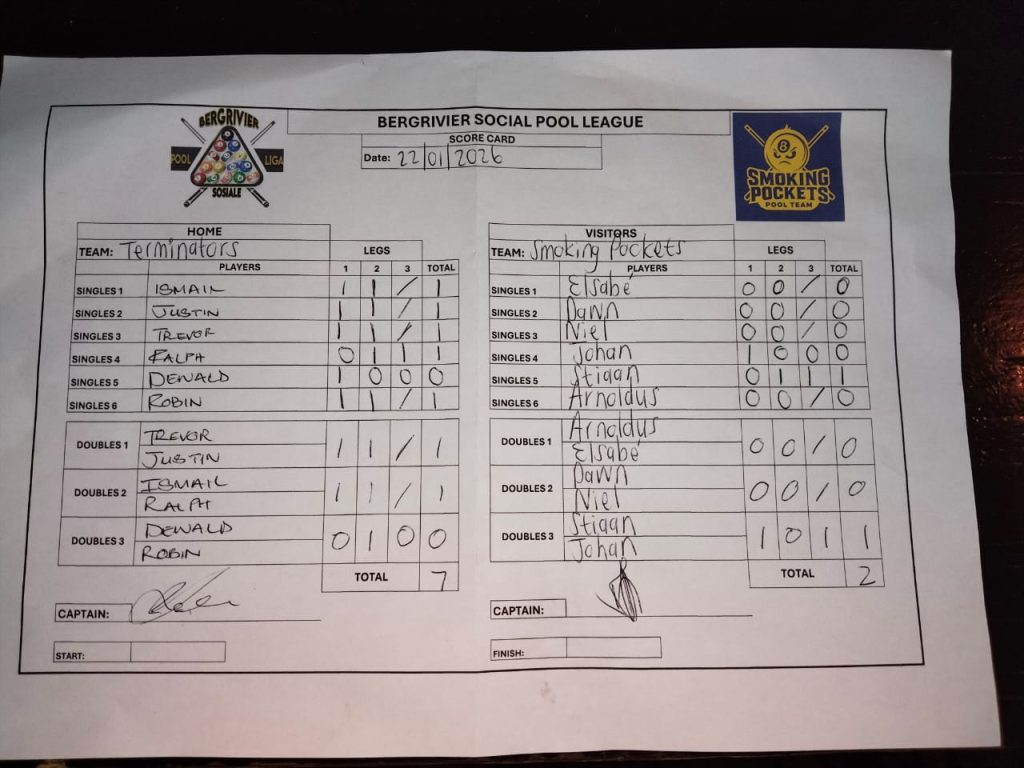 BERGRIVIER
POOL LIGA
SOSIALE
BERGRIVIER SOCIAL POOL LEAGUE
SCORE CARD
Date: 22/01/2026
8
SMOKING
POCKETS
POOL TEAM
HOME
TEAM: Terminators LEGS
PLAYERS 1 2 3 TOTAL
SINGLES 1 ISMAIL 1 1 / 1
SINGLES 2 JUSTIN 1 1 / 1
SINGLES 3 TREVOR 1 1 / 1
SINGLES 4 RALPH 0 1 1 1
SINGLES 5 DEWALD 1 0 0 0
SINGLES 6 ROBIN 1 1 / 1
DOUBLES 1 TREVOR 1 1 / 1
JUSTIN
DOUBLES 2 ISMAIL 1 1 / 1
RALPH
DOUBLES 3 DEWALD 0 1 0 0
ROBIN
TOTAL 7
CAPTAIN:
START:
VISITORS
TEAM: Smoking Pockets LEGS
PLAYERS 1 2 3 TOTAL
SINGLES 1 Elsabé 0 0 / 0
SINGLES 2 Dawn 0 0 / 0
SINGLES 3 Niel 0 0 / 0
SINGLES 4 Johan 1 0 0 0
SINGLES 5 Stiaan 0 1 1 1
SINGLES 6 Arnoldus 0 0 / 0
DOUBLES 1 Arnoldus 0 0 / 0
Elsabé
DOUBLES 2 Dawn 0 0 / 0
Niel
DOUBLES 3 Stiaan 1 0 1 1
Johan
TOTAL 2
CAPTAIN:
FINISH: